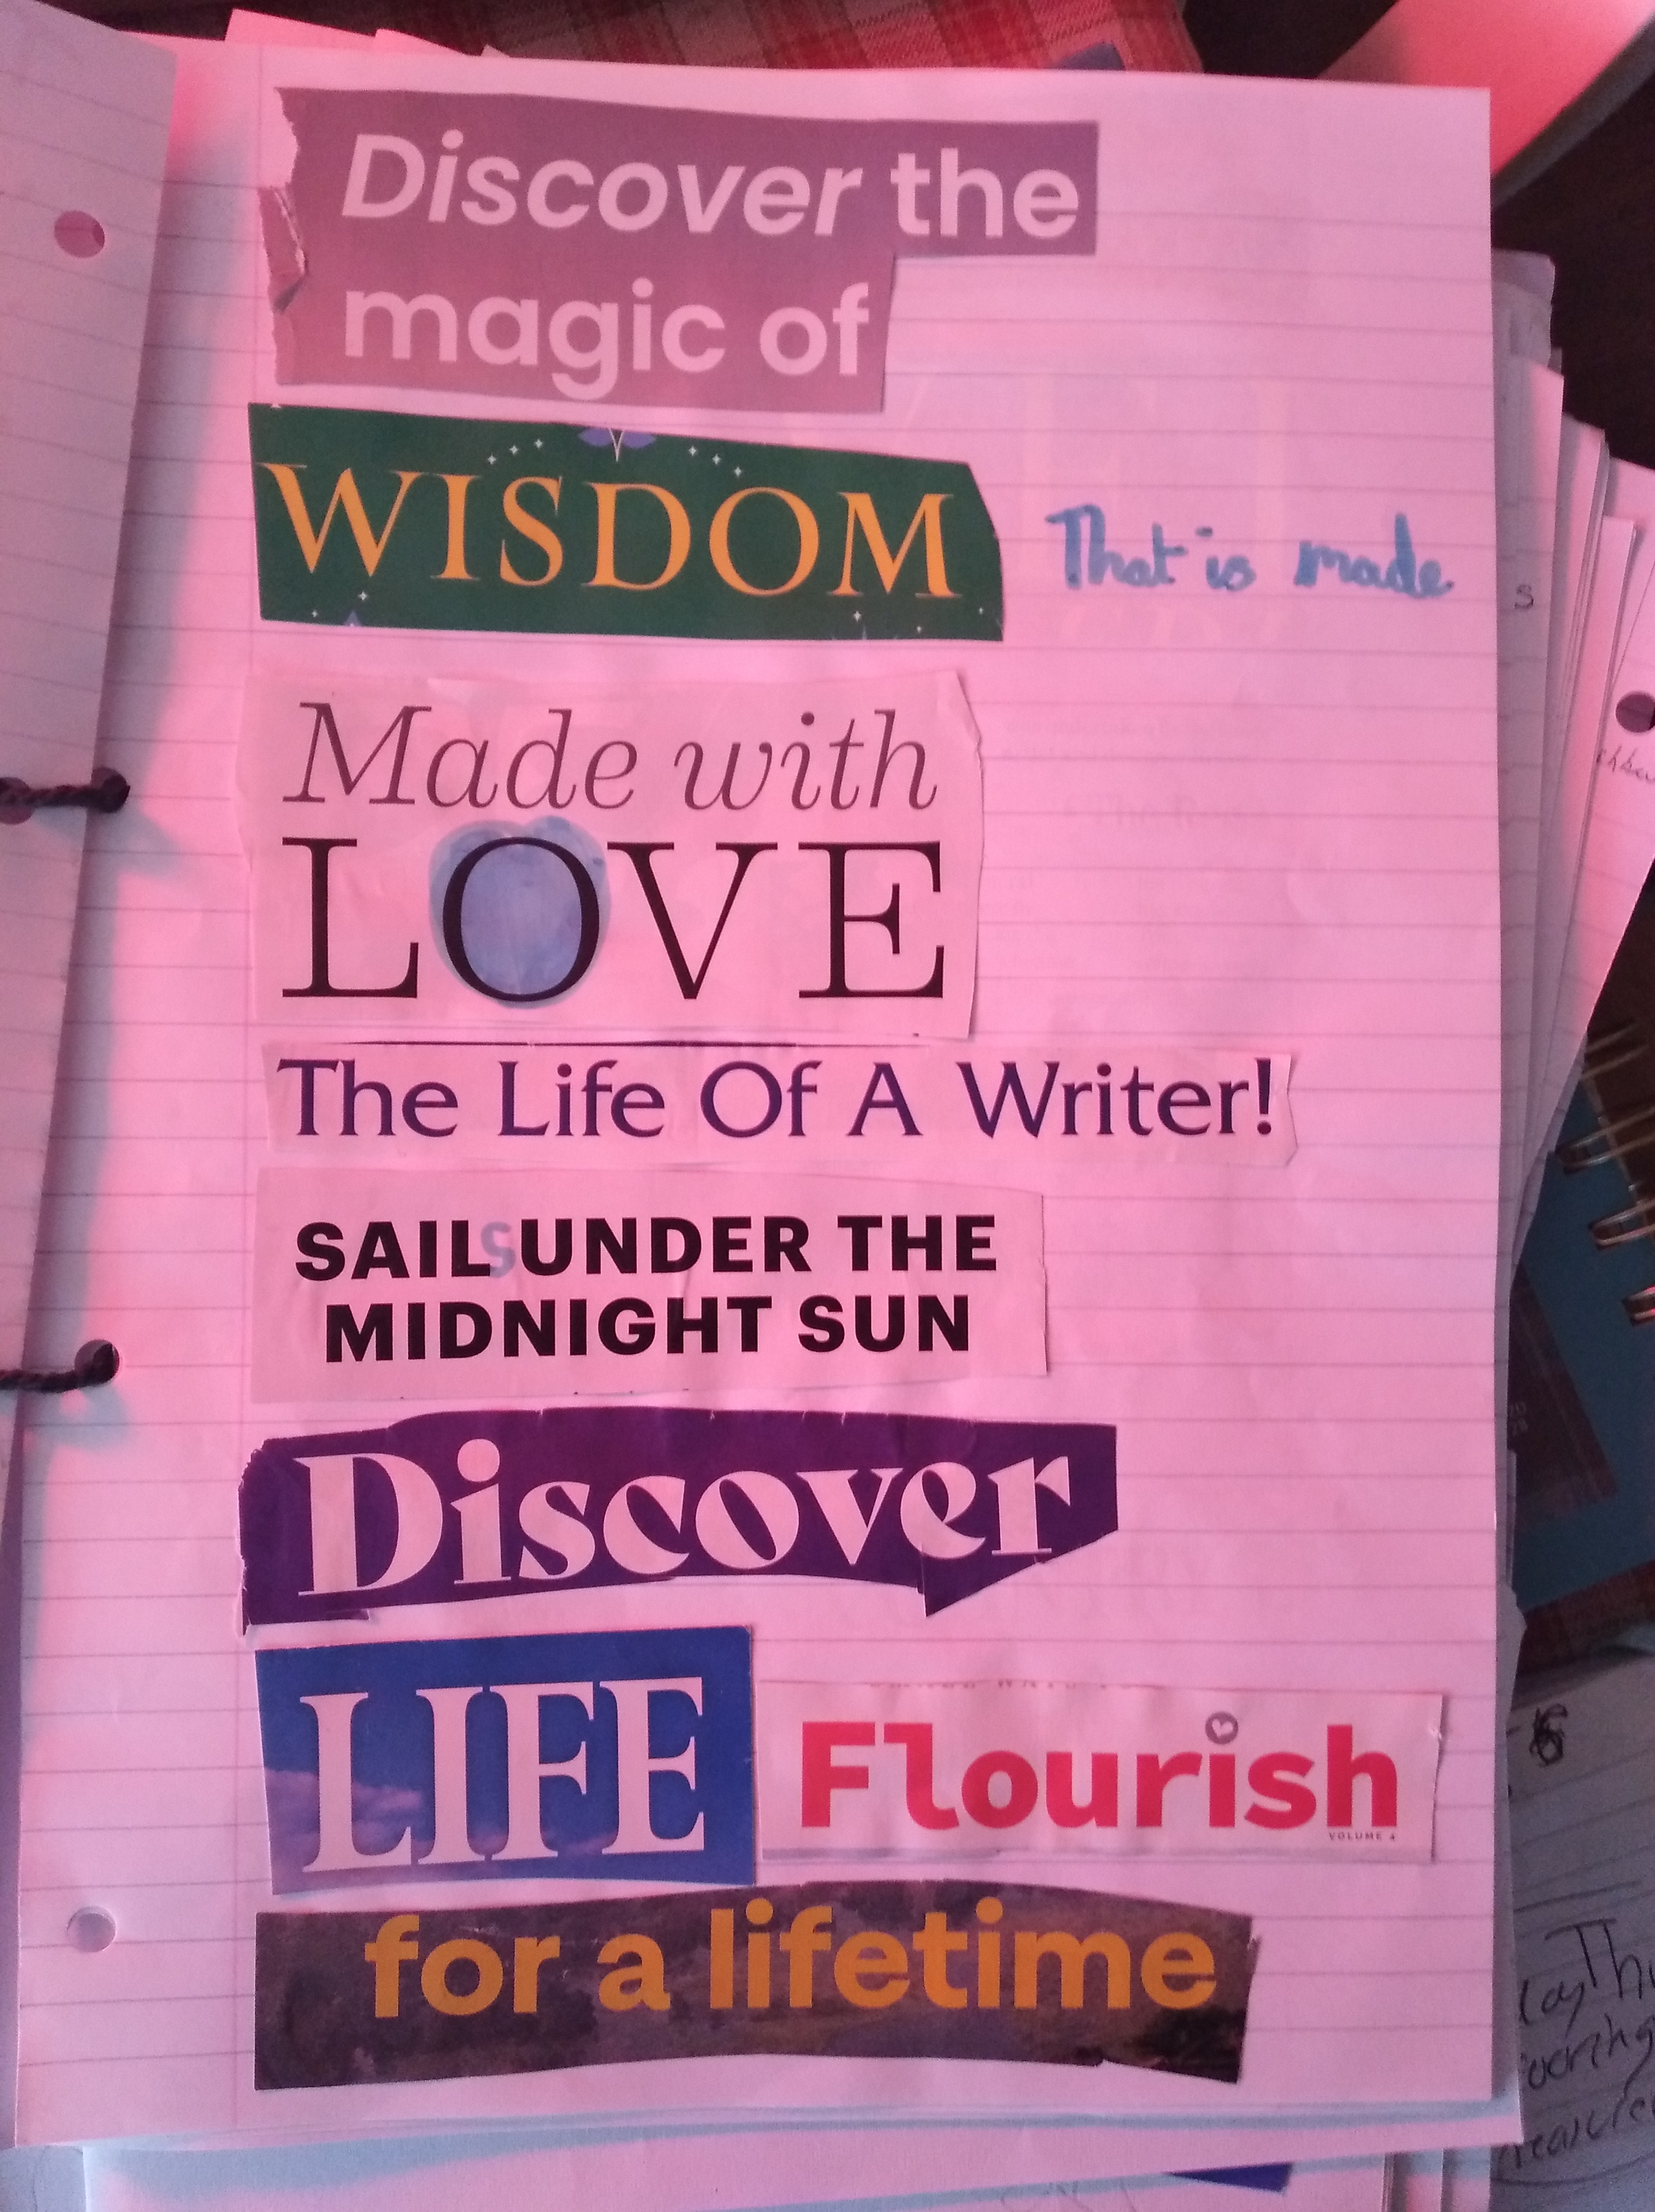 Discover the
magic of
WISDOM That is made
Made with
LOVE
The Life Of A Writer!
SAILS UNDER THE
MIDNIGHT SUN
Discover
LIFE Flourish
VOLUME 4
for a lifetime
s